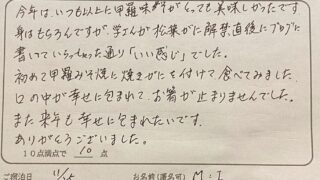 今年は、いつも以上に甲羅味噌がとっても美味しかったです
身はもちろんですが、学さんが松葉がに解禁直後にブログに
書いていらっしゃった通り「いい感じ」でした。
初めて甲羅みそ焼に焼きがにを付けて食べてみました。
口の中が幸せに包まれて、お箸が止まりませんでした。
また来年も幸せに包まれたいです。
ありがとうございました。
10点満点で 10 点
ご宿泊日 11/25 お名前(匿名可) M・I